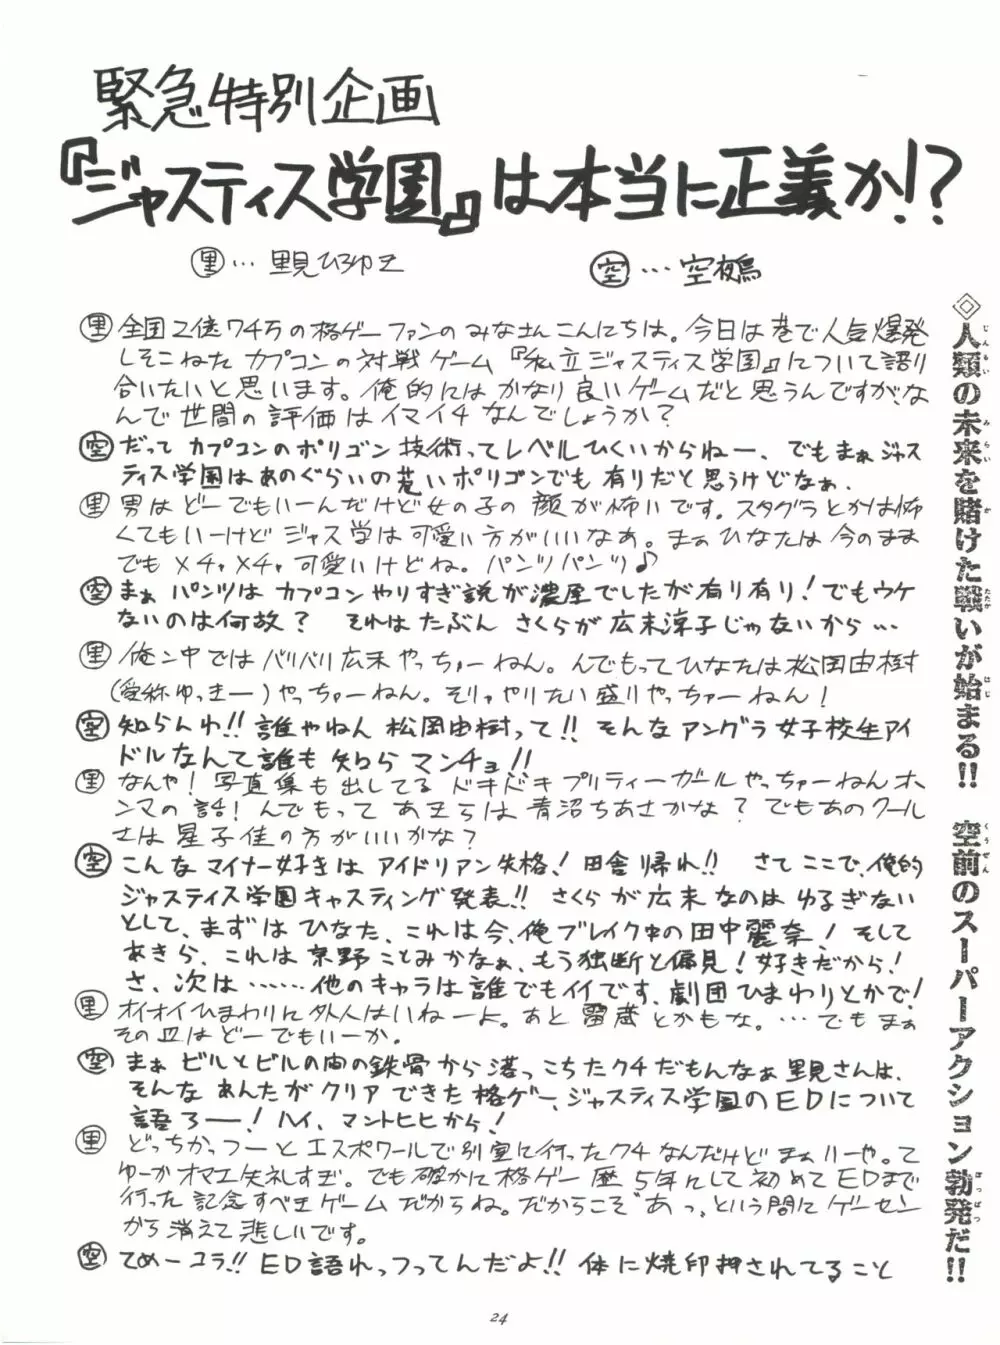 緊急特別企画
『ジャスティス学園』は本当に正義か!?
里…里見ひろゆき
空…空夜鳥
里 全国2億74万の格ゲーファンのみなさんこんにちは。今日は巷で人気爆発
しそこねた カプコンの対戦ゲーム『私立ジャスティス学園』について語り
合いたいと思います。俺的にはかなり良いゲームだと思うんですが、な
んで世間の評価はイマイチなんでしょうか?
空 だって カプコンのポリゴン技術ってレベルひくいからねー、でもまぁジャス
ティス学園はあのぐらいの荒いポリゴンでも有りだと思うけどなぁ。
里 男はどーでもいーんだけど女の子の顔が怖いです。スタグラとかは怖
くてもいーけどジャス学は可愛い方がいいなあ。まぁひなたは今のまま
でもメチャメチャ可愛いけどね。パンツパンツ♪
空 まぁ パンツは カプコンやりすぎ説が濃厚でしたが有り有り!でもウケ
ないのは何故? それはたぶん さくらが広末涼子じゃないから…
里 俺ン中ではバリバリ広末やっちゅーねん。んでもってひなたは松岡由樹
(愛称ゆっきー)やっちゅーねん。そりゃやりたい盛りやっちゅーねん!
空 知らんわ!!誰やねん 松岡由樹って!!そんなアングラ女子校生アイ
ドルなんて誰も知らマンチョ!!
里 なんや!写真集も出してるドキドキプリティーガールやっちゅーねんホ
ンマの話!んでもって あきらは青沼ちあさかな?でもあのクール
さは星子佳の方がいいかな?
空 こんなマイナー好きはアイドリアン失格!田舎帰れ!! さてここで、俺的
ジャスティス学園キャスティング発表!!さくらが広末なのはゆるぎない
として、まずはひなた、これは今、俺ブレイク中の田中麗奈!そして
あきら、これは京野ことみかなぁ、もう独断と偏見!好きだから!
さ、次は……他のキャラは誰でもイイです、劇団ひまわりとかで!
里 オイオイひまわりに外人はいねーよ。あと雷蔵とかもな。…でもまぁ
その辺はどーでもいーか。
空 まぁ ビルとビルの間の鉄骨から落っこちたクチだもんなぁ里見さんは、
そんなあんたがクリアできた格ゲー、ジャスティス学園のEDについて
語ろー!ハイ、マントヒヒから!
里 どっちかっつーとエスポワールで別室に行ったクチなんだけどまぁいーや。て
ゆーかオマエ失礼すぎ。でも確かに格ゲー歴5年にして初めてEDまで
行った記念すべきゲームだからね。だからこそ“あっ”という間にゲーセン
から消えて悲しいです。
空 てめーコラ!!ED語れっつってんだよ!!体に焼印押されてること
◇人類の未来を賭けた戦いが始まる!! 空前のスーパーアクション勃発だ!!
24